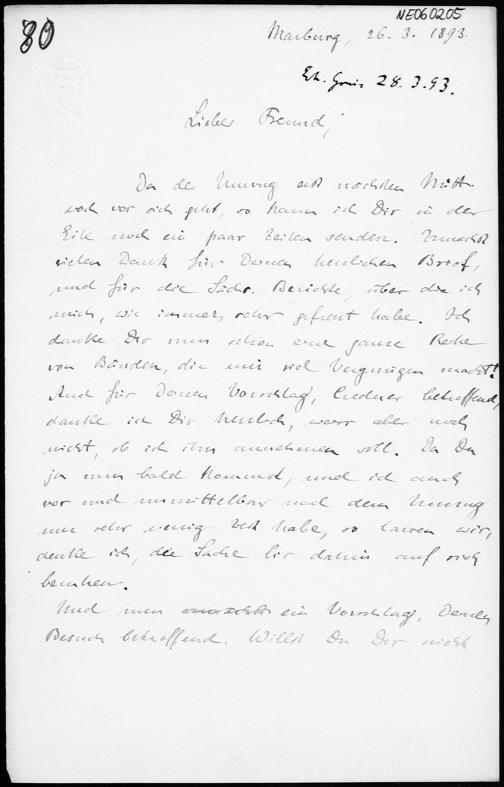 NE060205
80
Marburg, 26. 3. 1893.
28.3.93.
Lieber Freund,
Da der Umzug erst nächsten Mitt-
woch vor sich geht, so kann ich Dir in der
Eile noch ein paar Zeilen senden. Zunächst
vielen Dank für Deinen herzlichen Brief,
und für die Sächs. Berichte, über die ich
mich, wie immer, sehr gefreut habe. Ich
danke Dir nun schon eine ganze Reihe
von Bänden, die mir viel Vergnügen macht!
Auch für Deinen Vorschlag, betreffend,
danke ich Dir herzlich, weiss aber noch
nicht, ob ich ihn annehmen soll. Da Du
ja nun bald kommst, und ich auch
vor und unmittelbar nach dem Umzug
nur sehr wenig Zeit habe, so lassen wir,
denke ich, die Sache bis dahin auf sich
beruhen.
Und nun ein Vorschlag, Deinen
Besuch betreffend. Willst Du Dir nicht